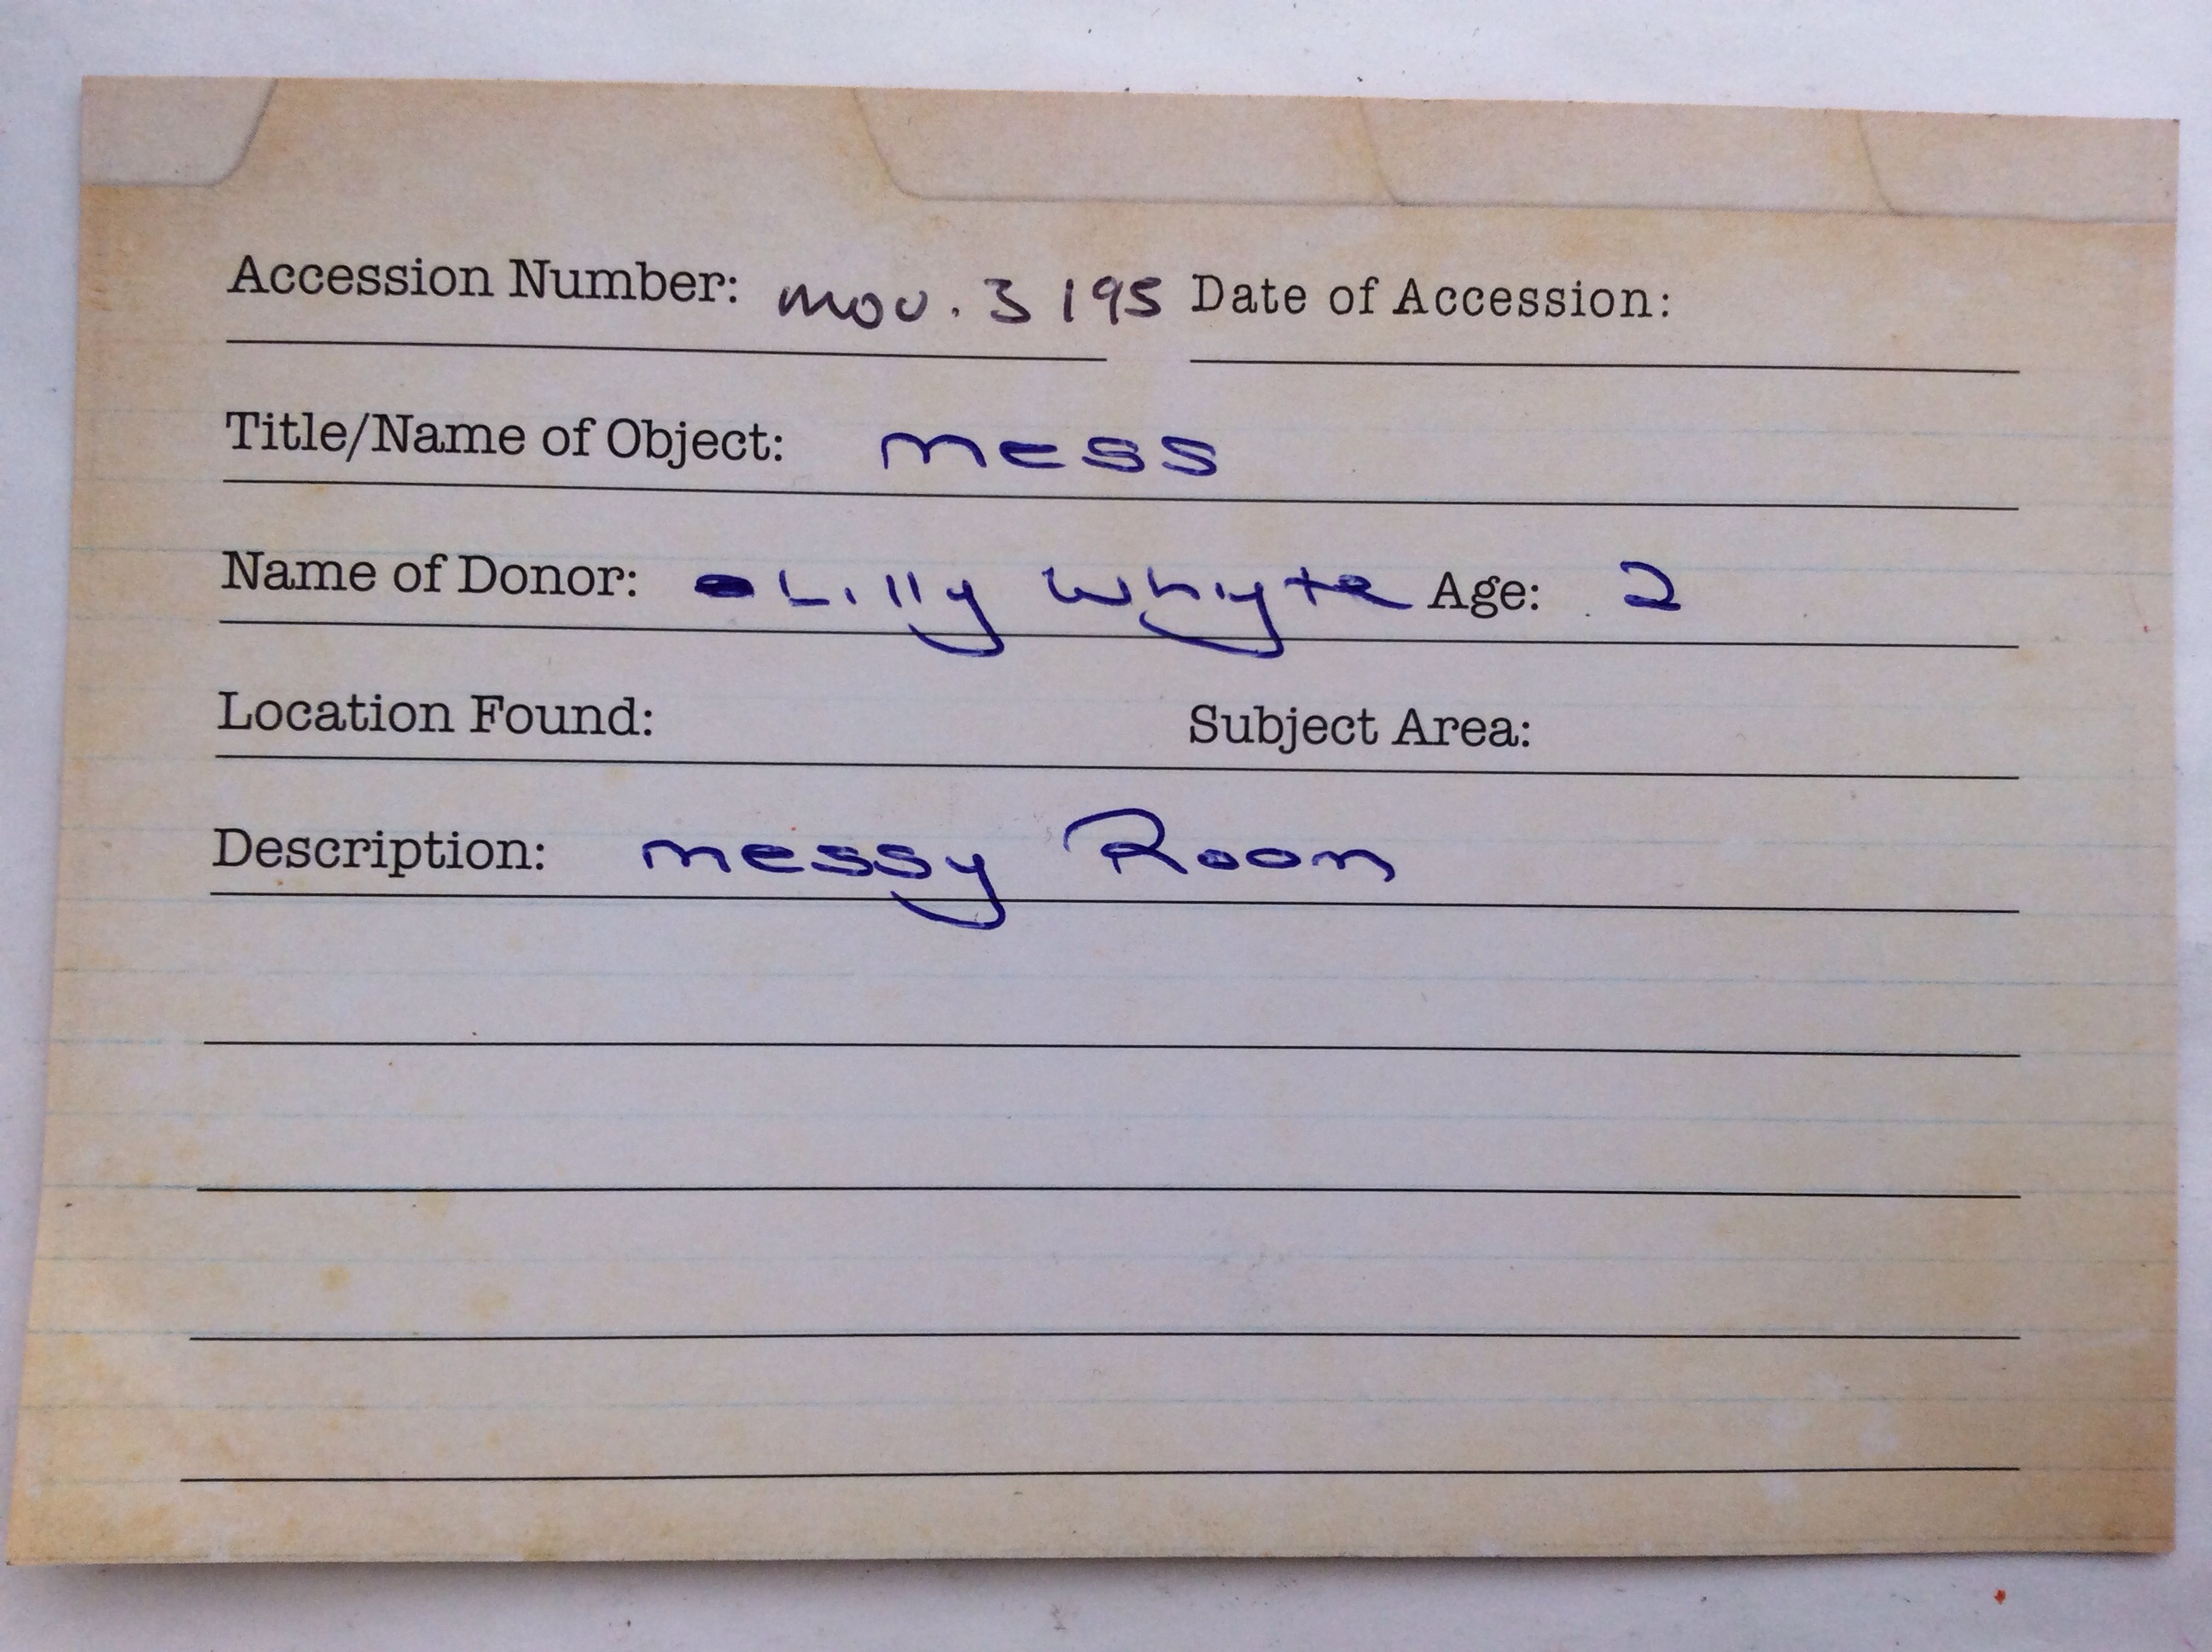 Accession Number: MOU. 3195 Date of Accession:
Title/Name of Object: mess
Name of Donor: Lilly Whyte Age: 2
Location Found: Subject Area:
Description: messy Room